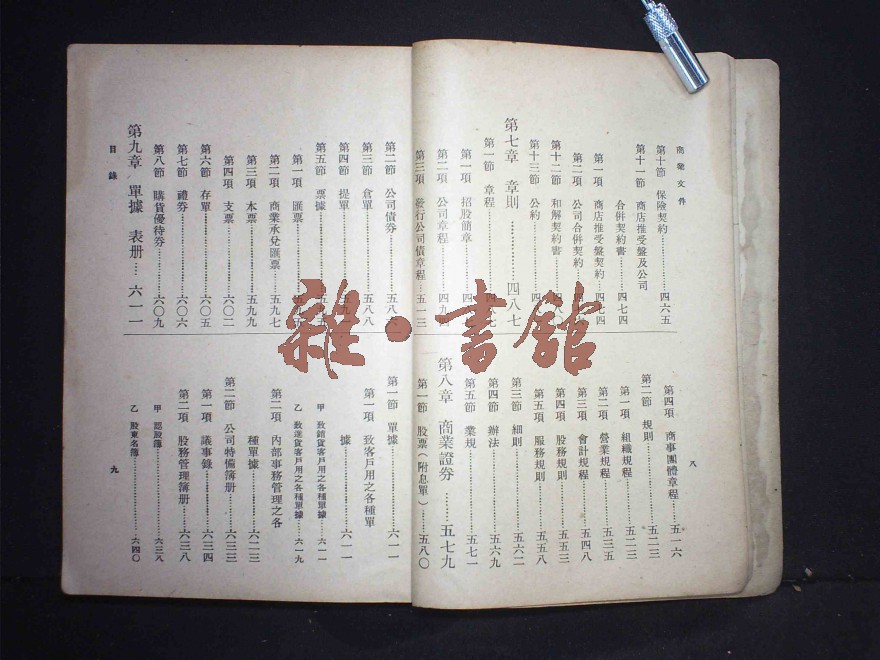 商業文件
第十節 保險契約……四六五
第十一節 商店推受盤及公司
合併契約書……四七四
第一項 商店推受盤契約……四七四
第二項 公司合併契約……四
第十二節 和解契約書……四八
第十三節 公約……四八
第七章 章則……四八七
第一節 章程……四八七
第一項 招股簡章……四
第二項 公司章程……四九
第三項 發行公司債章程……五一三
第四項 商事團體章程……五一六
第二節 規則……五二三
第一項 組織規程……五二三
第二項 營業規程……五三一
第三項 會計規程……五四八
第四項 股務規則……五五三
第五項 服務規則……五五八
第三節 細則……五六二
第四節 辦法……五六九
第五節 業規……五七一
第八章 商業證券……五七九
第一節 股票(附息單)……五八〇
八
第二節 公司債券……五八
第三節 倉單……五八八
第四節 提單……五九
第五節 票據……五
第一項 匯票……五九
第二項 商業承兌匯票……五九七
第三項 本票……五九九
第四項 支票……六〇二
第六節 存單……六〇五
第七節 禮券……六〇六
第八節 購貨優待券……六〇九
第九章 單據 表册……六一一
目錄
第一節 單據……六一一
第一項 致客戶用之各種單
據……六一一
甲 致銷貨客戶用之各種單據……六一一
乙 致進貨客戶用之各種單據……六一九
第二項 內部事務管理之各
種單據……六二三
第二節 公司特備簿册……六三三
第一項 議事錄……六三四
第二項 股務管理簿册……六三八
甲 認股簿……六三八
乙 股東名簿……六四〇
九
雜·書館